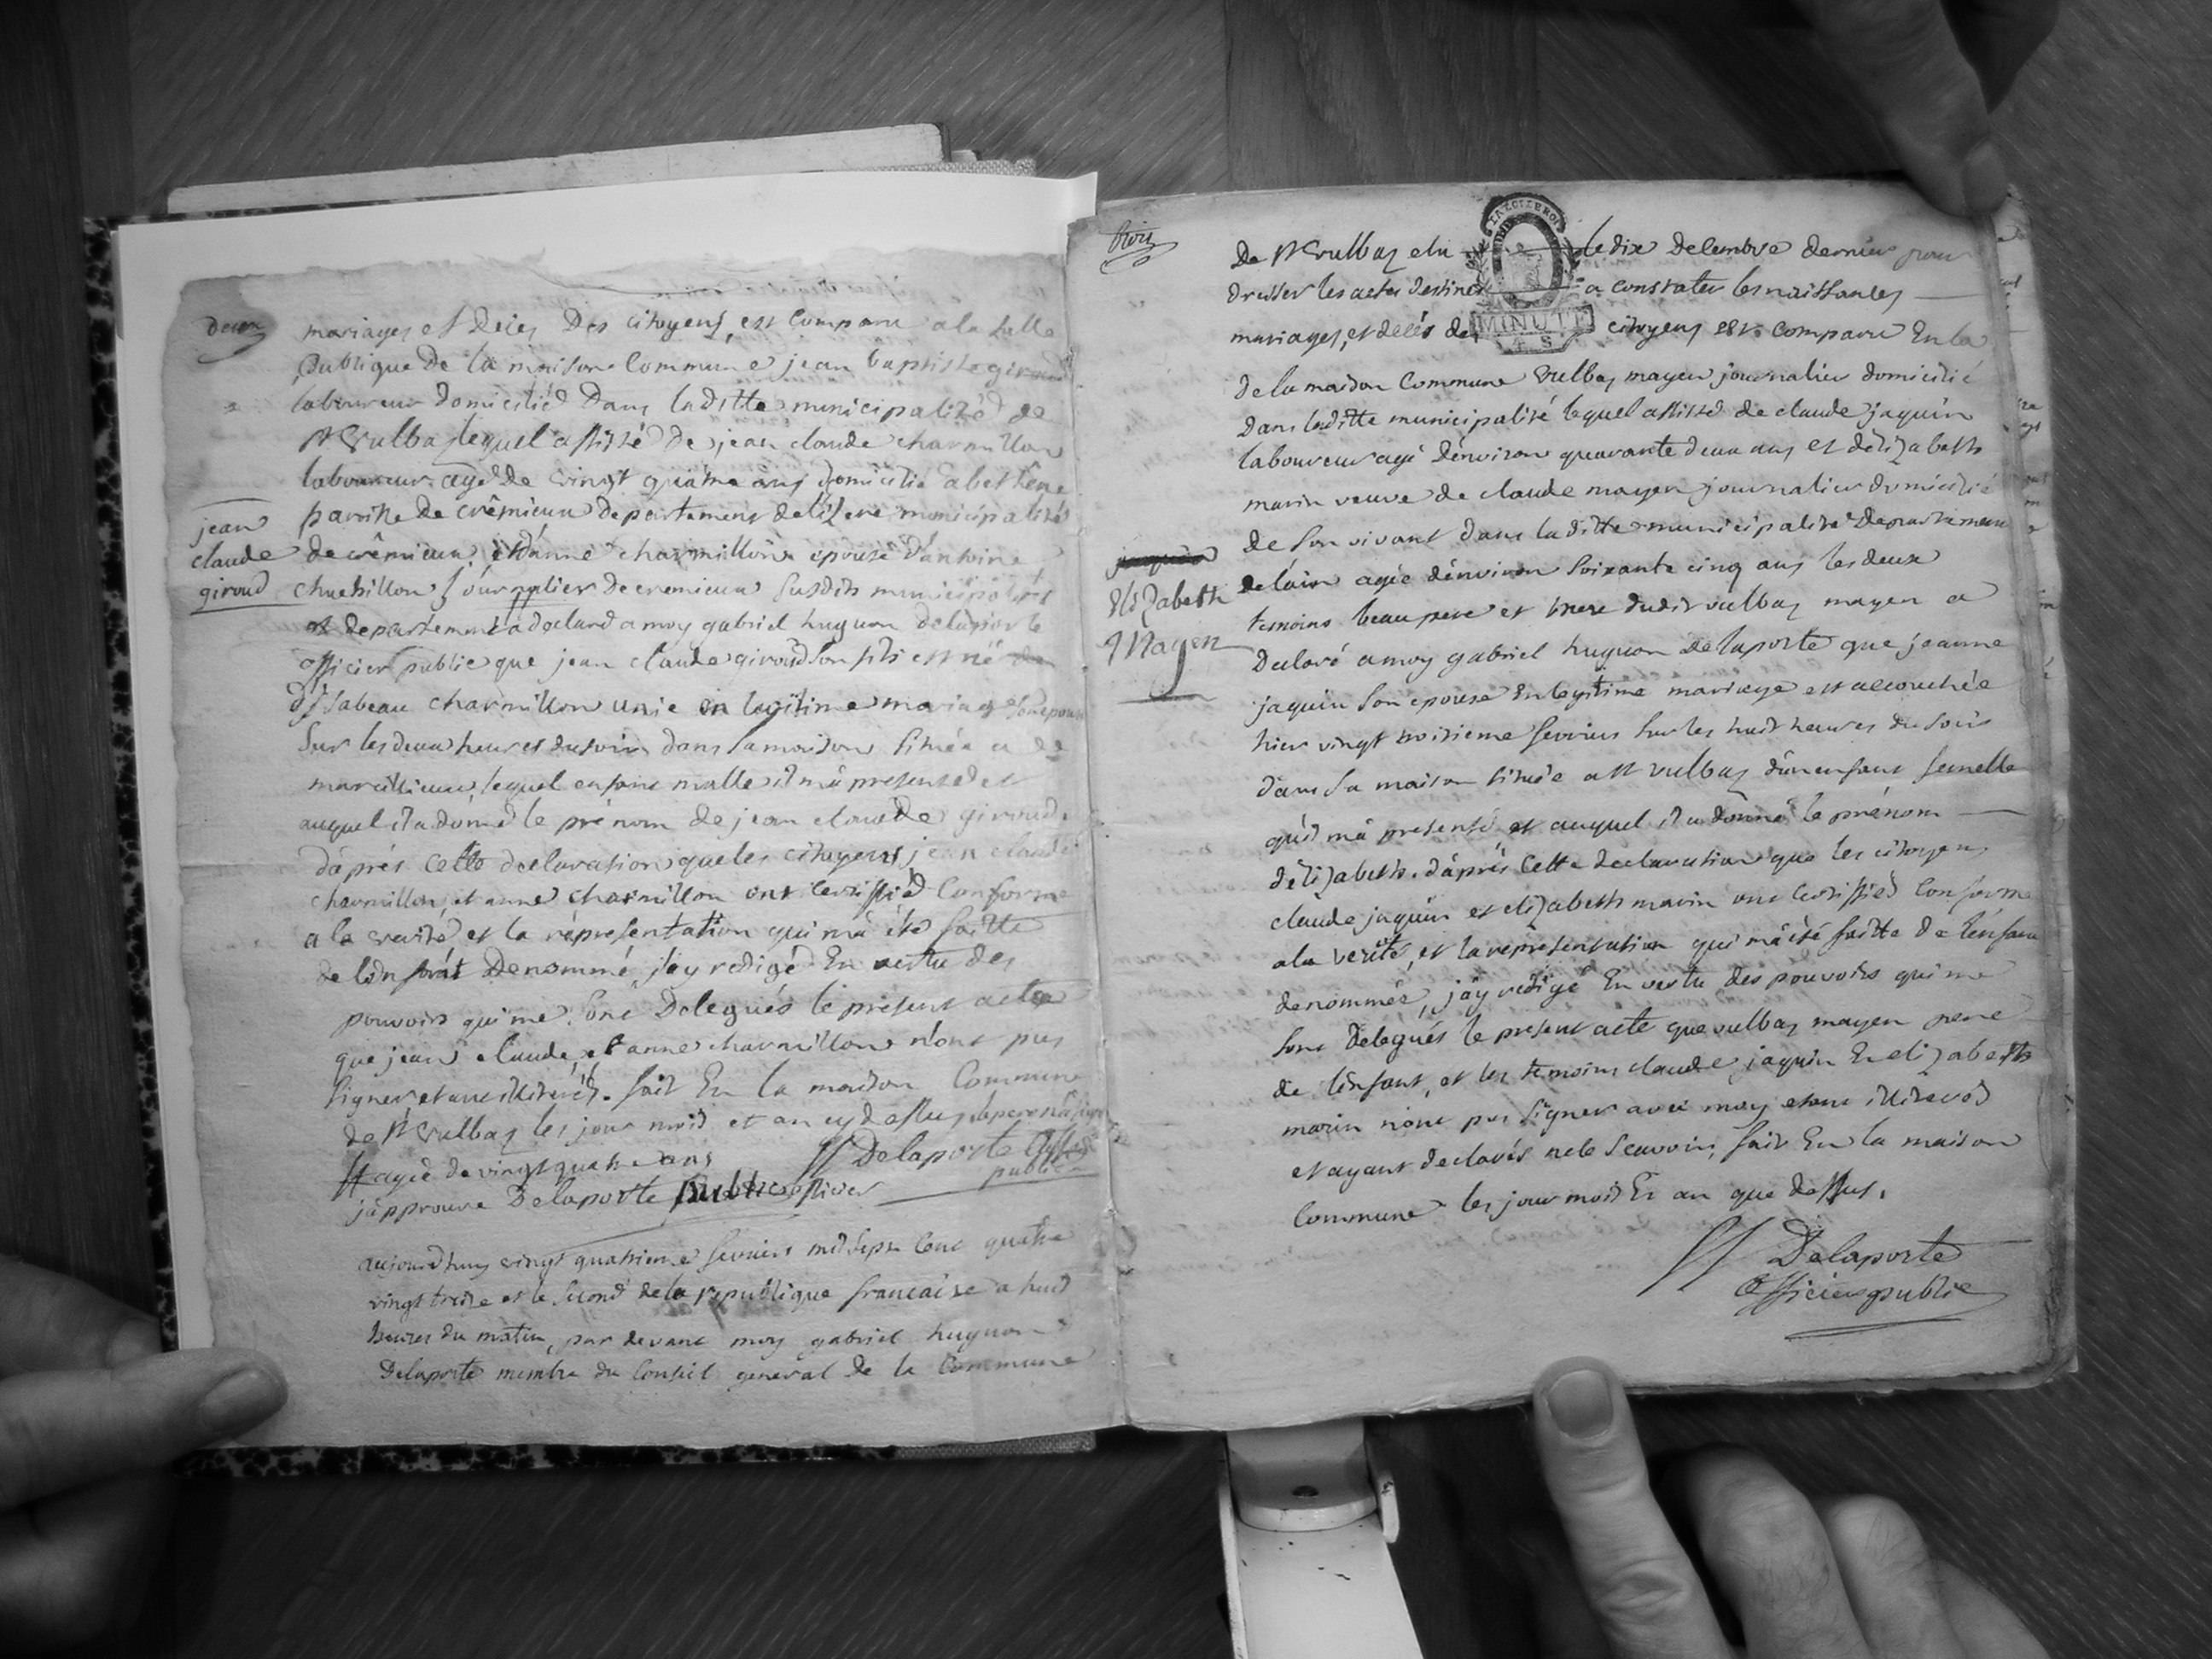 deux
mariages et deces Des citoyens, est Comparu a la salle
publique De la maison Commune jean baptiste giroud
laboureur Domicilié Dans laditte municipalité de
St Vulbaz lequel assisté de jean claude charmillon
laboureur agé de vingt quatre ans domicilié a bethene
paroisse De crêmieux departement de lizere municipalité
jean
claude
giroud
de crêmieux, et d'anne charmillon epouse d'antoine
journalier de cremieux susdits municipalité
et departement a déclaré a moy gabriel huguon delaporte
officier public que jean claude giroud son fils est né
d'isabeau charmillon unie en legitime mariage son epoux
sur les deux heures du soir dans sa maison située a
marcillieux, lequel enfant malle il m'a presenté et
auquel il a donné le prénom de jean claude giroud.
d'aprés cette declaration que les citoyens jean claude
charmillon, et anne charmillon ont certiffié Conforme
a la verité, et la réprésentation qui m'a été faitte
de l'enfant Denommé, j'ay redigé En vertu des
pouvoirs qui me sont Delegués le présent acte
que jean claude, et anne charmillon n'ont pus
signer etant illiterés. fait En la maison Commune
de St Vulbaz les jour mois et an cy dessus
agée de vingt quatre ans
Delaporte
public
j'approuve Delaporte public officier
aujourdhuy vingt quatrieme fevrier mil sept cent quatre
vingt treize et le second de la republique francaise a huit
heures du matin, par devant moy gabriel huguon
Delaporte membre du Conseil general de la Commune
trois
De St Vulbaz elu le dix decembre dernier pour
dresser les actes destinés a constater les naissances
mariages, et decés des citoyens est comparu En la
MINUTE
4 S
de la maison Commune Vulbaz mayen journalier domicilié
dans laditte municipalité lequel assisté de claude jaquin
laboureur agé d'environ quarante deux ans et d'elizabeth
marin veuve de claude mayen journalier domicilié
de son vivant dans la ditte municipalité Departement
Elizabeth
Mayen
de l'ain agée d'environ soixante cinq ans les deux
temoins beau pere et mere dudit vulbaz mayen a
Declaré a moy gabriel huguon Delaporte que jeanne
jaquin son epouse En legitime mariage est accouchée
hier vingt troisieme fevrier sur les huit heures du soir
dans sa maison située a St vulbaz d'un enfant femelle
qu'il m'a presenté et auquel il a donné le prénom
d'elizabeth. d'aprés cette declaration que les citoyens
claude jaquin et elizabeth marin ont certiffiés Conforme
a la verité, et la representation qui m'a été faitte de l'enfant
denommés, j'ay redigé En vertu des pouvoirs qui me
sont delegués le present acte que vulbaz mayen pere
de l'enfant, et les temoins claude jaquin Et elizabeth
marin n'ont pus signer avec moy etant illiterés
et ayant declarés ne le scavoir, fait En la maison
Commune les jour mois Et an que dessus.
Delaporte
officier public